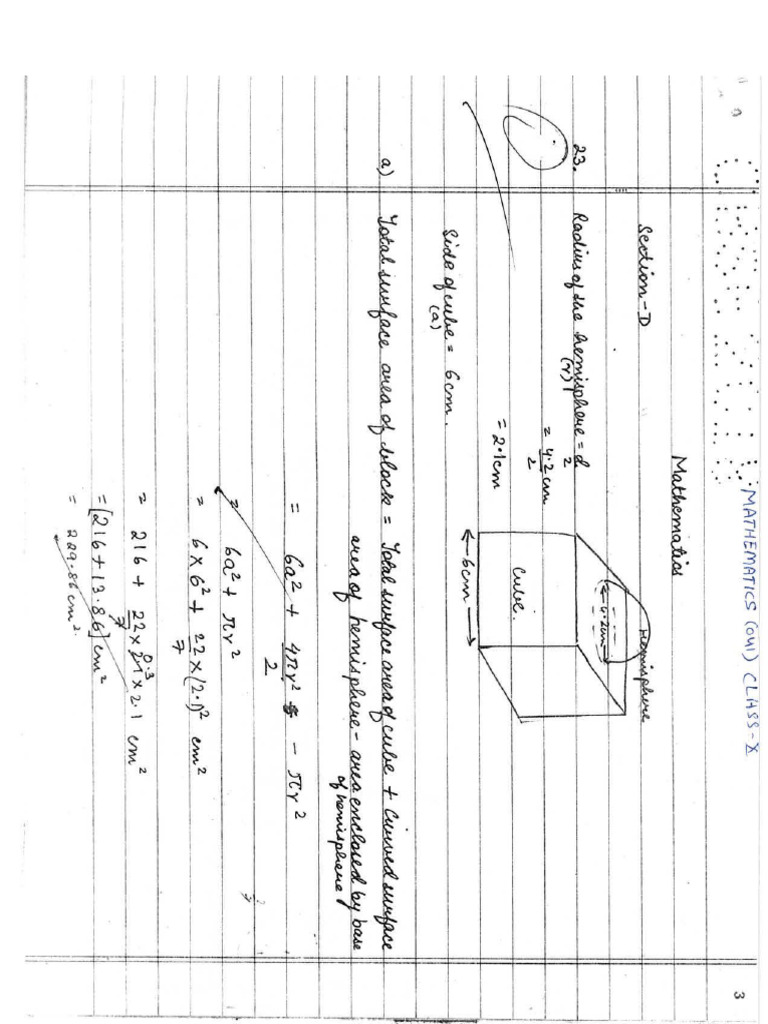 3
MATHEMATICS (041) CLASS-X
Mathematics
Section-D
23. Radius of the hemisphere = d/2
(r)
= 4.2 cm/2
= 2.1cm
Hemisphere
←4.2cm→
cube.
←6cm→
Side of cube = 6cm.
(a)
a) Total surface area of block = Total surface area of cube + Curved surface
area of hemisphere - area enclosed by base
of hemisphere
= 6a² + 4πr²/2 - πr²
= 6a² + πr²
= 6 × 6² + 22/7 × (2.1)² cm²
= 216 + 22/7 × 2.1 × 2.1 cm²
0.3
= [216 + 13.86] cm²
= 229.86 cm².